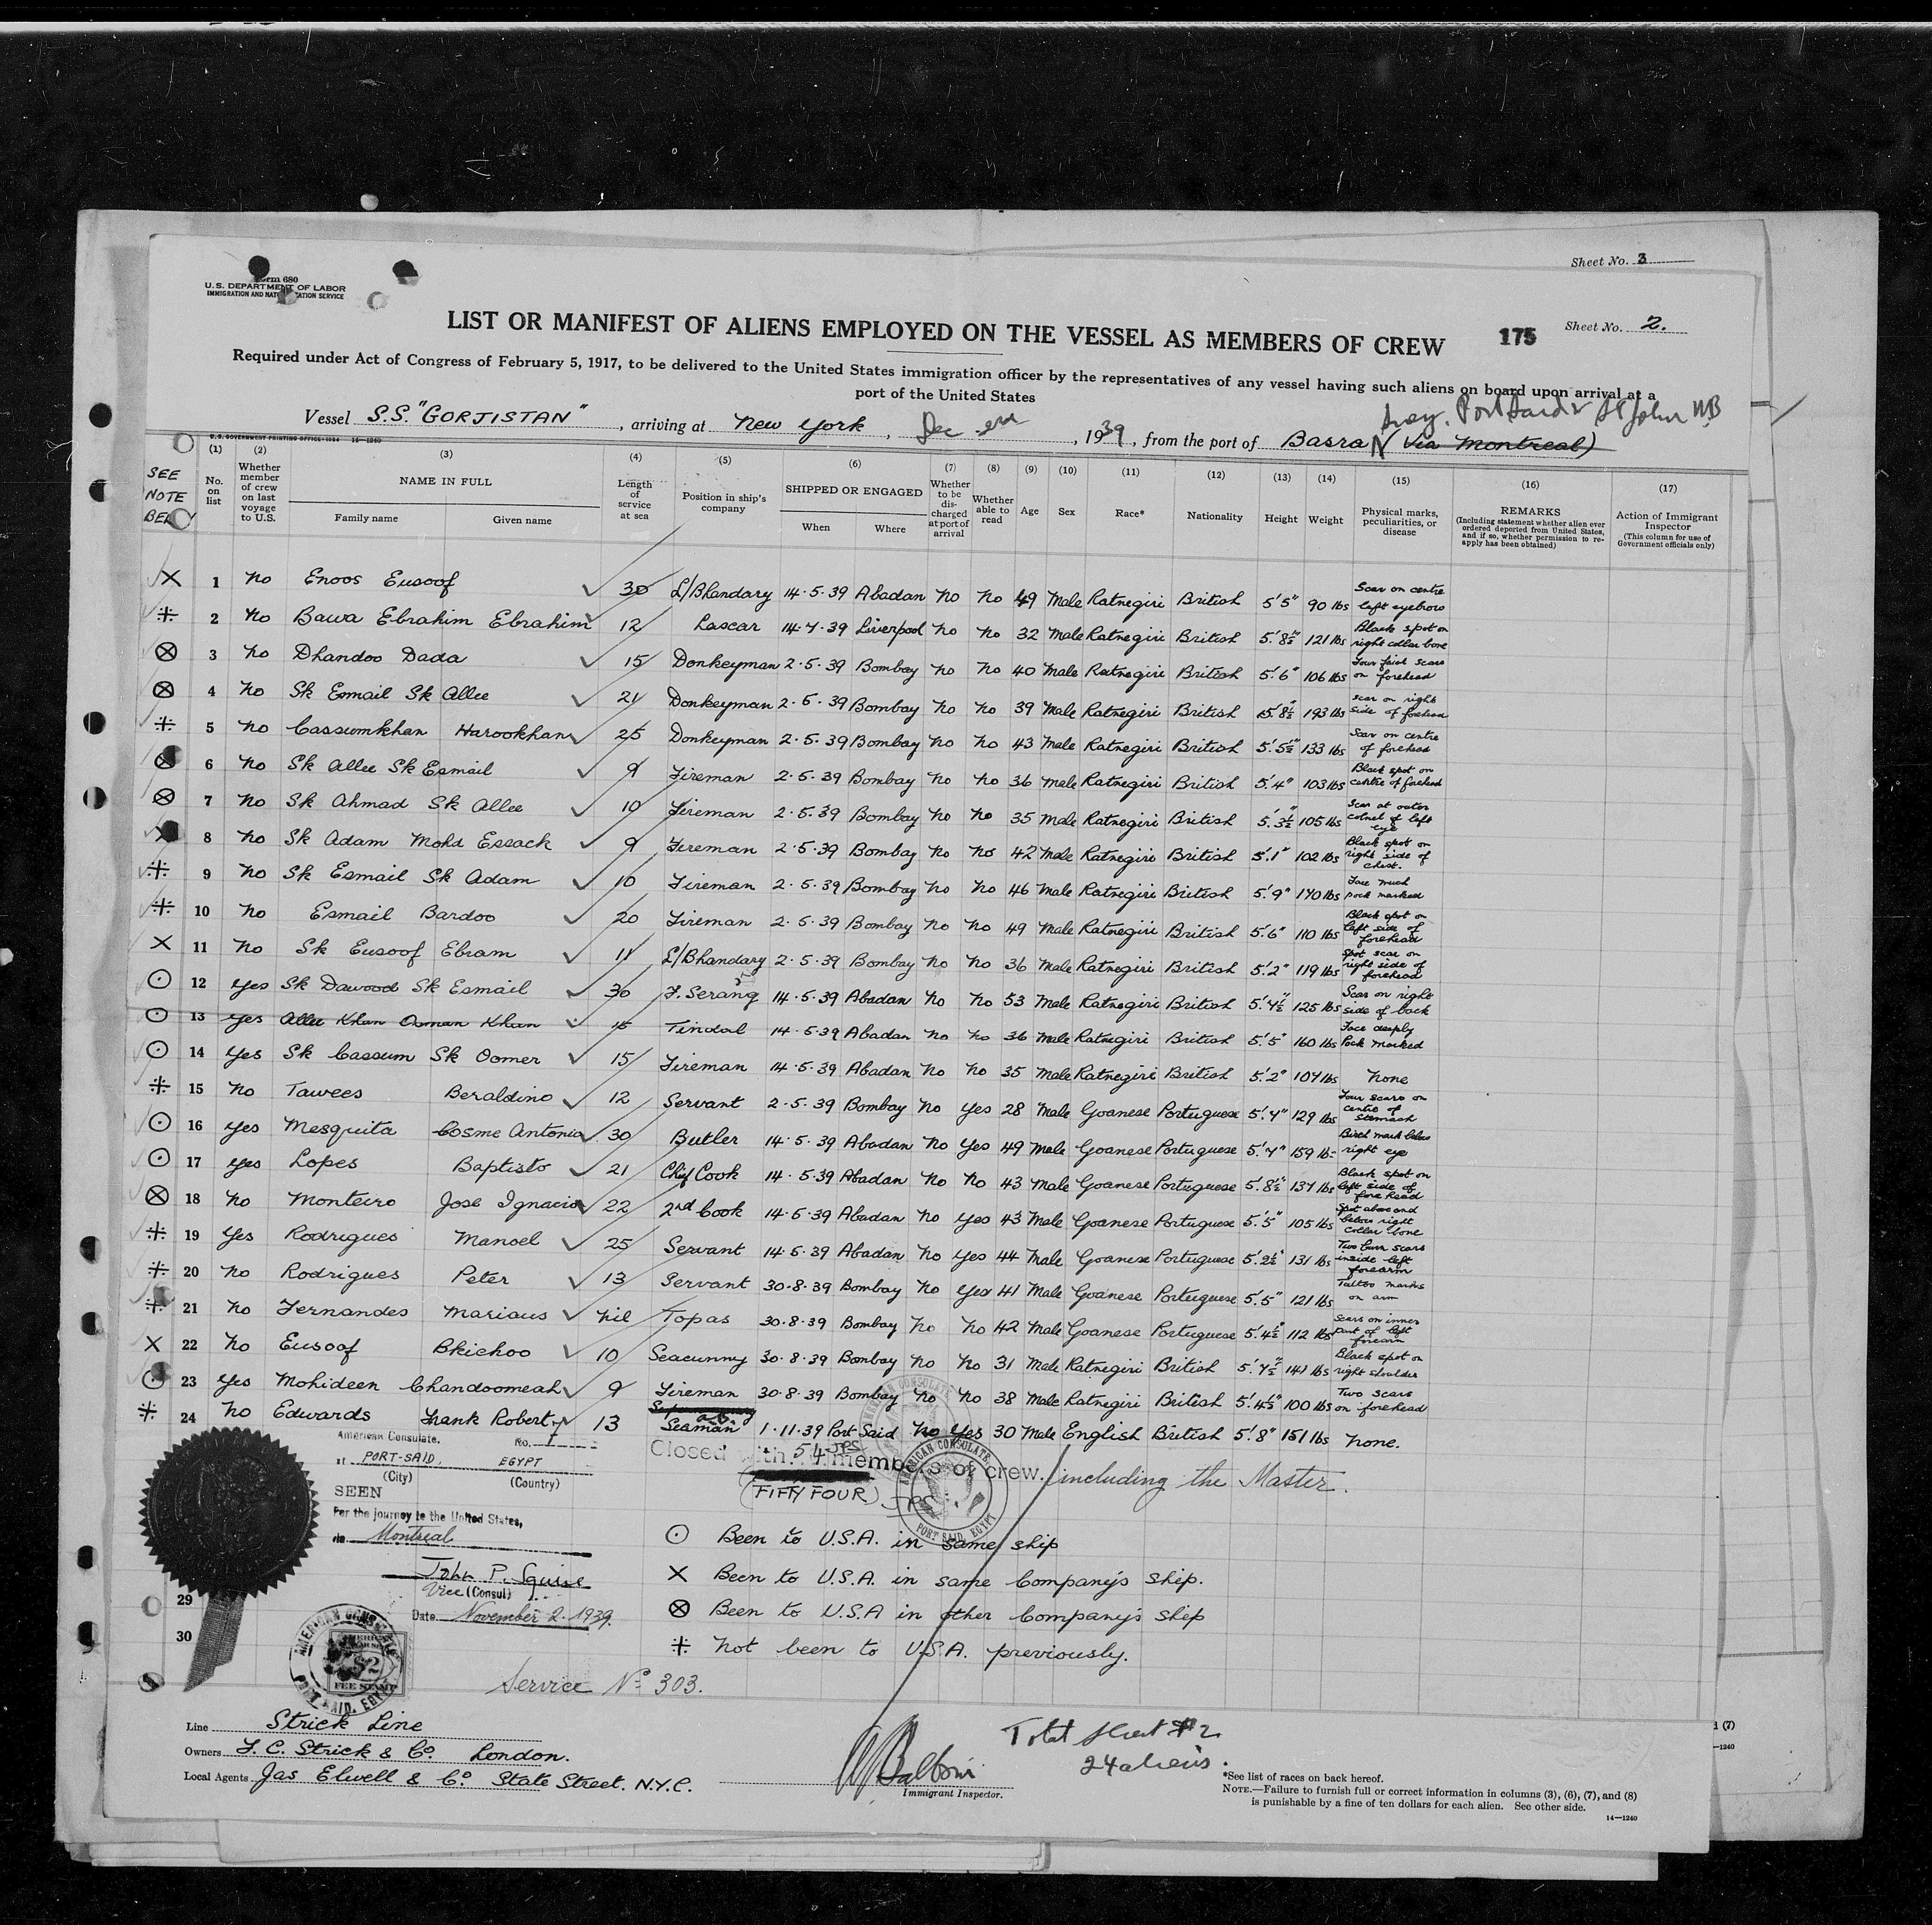 Sheet No. 3
Form 680
U.S. DEPARTMENT OF LABOR
IMMIGRATION AND NATURALIZATION SERVICE
LIST OR MANIFEST OF ALIENS EMPLOYED ON THE VESSEL AS MEMBERS OF CREW 175 Sheet No. 2.
Required under Act of Congress of February 5, 1917, to be delivered to the United States immigration officer by the representatives of any vessel having such aliens on board upon arrival at a
port of the United States
Port Said St John NB
Vessel S.S. "GORJISTAN", arriving at New York, Dec 2nd, 1939, from the port of Basra via Montreal)
U.S. GOVERNMENT PRINTING OFFICE 14—1240
SEE NOTE BELOW
(1) No. on list
(2) Whether member of crew on last voyage to U.S.
(3) NAME IN FULL Family name Given name
(4) Length of service at sea
(5) Position in ship's company
(6) SHIPPED OR ENGAGED When Where
(7) Whether to be discharged at port of arrival
(8) Whether able to read
(9) Age
(10) Sex
(11) Race*
(12) Nationality
(13) Height
(14) Weight
(15) Physical marks, peculiarities, or disease
(16) REMARKS (Including statement whether alien ever ordered deported from United States, and if so, whether permission to re-apply has been obtained)
(17) Action of Immigrant Inspector (This column for use of Government officials only)
X 1 No Enoos Eusoof 30 L/Bhandary 14.5.39 Abadan No No 49 Male Ratnegiri British 5'5" 90 lbs Scar on centre left eyebrow
⁜ 2 No Bawa Ebrahim Ebrahim 12 Lascar 14.7.39 Liverpool No No 32 Male Ratnegiri British 5'.8½" 121 lbs Black spot on right collar bone
⊗ 3 No Dhandoo Dada 15 Donkeyman 2.5.39 Bombay No No 40 Male Ratnegiri British 5'.6" 106 lbs Four faint scars on forehead
⊗ 4 No Sk Esmail Sk Allee 21 Donkeyman 2.5.39 Bombay No No 39 Male Ratnegiri British 5'.8½" 193 lbs Scar on right side of forehead
⁜ 5 No Cassumkhan Harookhan 25 Donkeyman 2.5.39 Bombay No No 43 Male Ratnegiri British 5'.5½" 133 lbs Scar on centre of forehead
⊗ 6 No Sk Allee Sk Esmail 9 Fireman 2.5.39 Bombay No No 36 Male Ratnegiri British 5'.4" 103 lbs Black spot on centre of forehead
⊗ 7 No Sk Ahmad Sk Allee 10 Fireman 2.5.39 Bombay No No 35 Male Ratnegiri British 5'.3½" 105 lbs Scar at outer corner of left eye
X 8 No Sk Adam Mohd Essack 9 Fireman 2.5.39 Bombay No No 42 Male Ratnegiri British 5'.1" 102 lbs Black spot on right side of chest.
⁜ 9 No Sk Esmail Sk Adam 10 Fireman 2.5.39 Bombay No No 46 Male Ratnegiri British 5'.9" 170 lbs Face much pock marked
⁜ 10 No Esmail Bardoo 20 Fireman 2.5.39 Bombay No No 49 Male Ratnegiri British 5'.6" 110 lbs Black spot on left side of forehead
X 11 No Sk Eusoof Ebram 11 L/Bhandary 2.5.39 Bombay No No 36 Male Ratnegiri British 5'.2" 119 lbs Spot scar on right side of forehead
⊙ 12 Yes Sk Dawood Sk Esmail 30 F. Serang 14.5.39 Abadan No No 53 Male Ratnegiri British 5'.7½" 125 lbs Scar on right side of back
⊙ 13 Yes Allee Khan Osman Khan 15 Tindal 14.5.39 Abadan No No 36 Male Ratnegiri British 5'.5" 160 lbs Face deeply Pock marked
⊙ 14 Yes Sk Cassum Sk Oomer 15 Fireman 14.5.39 Abadan No No 35 Male Ratnegiri British 5'.2" 107 lbs None
⁜ 15 No Tawees Beraldino 12 Servant 2.5.39 Bombay No Yes 28 Male Goanese Portuguese 5'.7" 129 lbs Four scars on centre of stomach
⊙ 16 Yes Mesquita Cosme Antonio 30 Butler 14.5.39 Abadan No Yes 49 Male Goanese Portuguese 5'.7" 159 lbs Birth mark below right eye
⊙ 17 Yes Lopes Baptisto 21 Chief Cook 14.5.39 Abadan No No 43 Male Goanese Portuguese 5'.8½" 137 lbs Black spot on left side of forehead
⊗ 18 No Monteiro Jose Ignacio 22 2nd Cook 14.5.39 Abadan No Yes 43 Male Goanese Portuguese 5'.5" 105 lbs Spot above and below right collar bone
⁜ 19 Yes Rodrigues Manoel 25 Servant 14.5.39 Abadan No Yes 44 Male Goanese Portuguese 5'.2½" 131 lbs Two burn scars inside left forearm
⁜ 20 No Rodrigues Peter 13 Servant 30.8.39 Bombay No Yes 41 Male Goanese Portuguese 5'.5" 121 lbs Tattoo marks on arm
⁜ 21 No Fernandes Mariaus Nil Topas 30.8.39 Bombay No No 42 Male Goanese Portuguese 5'.4½" 112 lbs Scars on inner part of left forearm
X 22 No Eusoof Bkichoo 10 Seacunny 30.8.39 Bombay No No 31 Male Ratnegiri British 5'.7½" 141 lbs Black spot on right shoulder
⊙ 23 Yes Mohideen Chandoomeah 9 Fireman 30.8.39 Bombay No No 38 Male Ratnegiri British 5'.4½" 100 lbs Two scars on forehead
⁜ 24 No Edwards Frank Robert 13 Supernumerary a.b. Seaman 1.11.39 Port Said No Yes 30 Male English British 5'.8" 151 lbs None.
American Consulate. No. I
at PORT-SAID, EGYPT
(City) (Country)
SEEN
For the journey to the United States,
via Montreal
John P. Squire
Vice (Consul)
Date November 2. 1939.
Closed with 54 JPS members of crew, including the Master.
(FIFTY FOUR) JPS
AMERICAN CONSULATE PORT SAID, EGYPT
⊙ Been to U.S.A. in same ship
X Been to U.S.A. in same Company's ship.
⊗ Been to U.S.A in other Company's ship
⁜ Not been to U.S.A. previously.
29
30
AMERICAN CONSULATE PORT SAID, EGYPT
$2 FEE STAMP
Service No 303.
Line Strick Line
Owners F. C. Strick & Co. London.
Local Agents Jas Elwell & Co. State Street. N.Y.C.
Immigrant Inspector.
Total sheet #2
24 aliens.
*See list of races on back hereof.
NOTE.—Failure to furnish full or correct information in columns (3), (6), (7), and (8)
is punishable by a fine of ten dollars for each alien. See other side.
14—1240